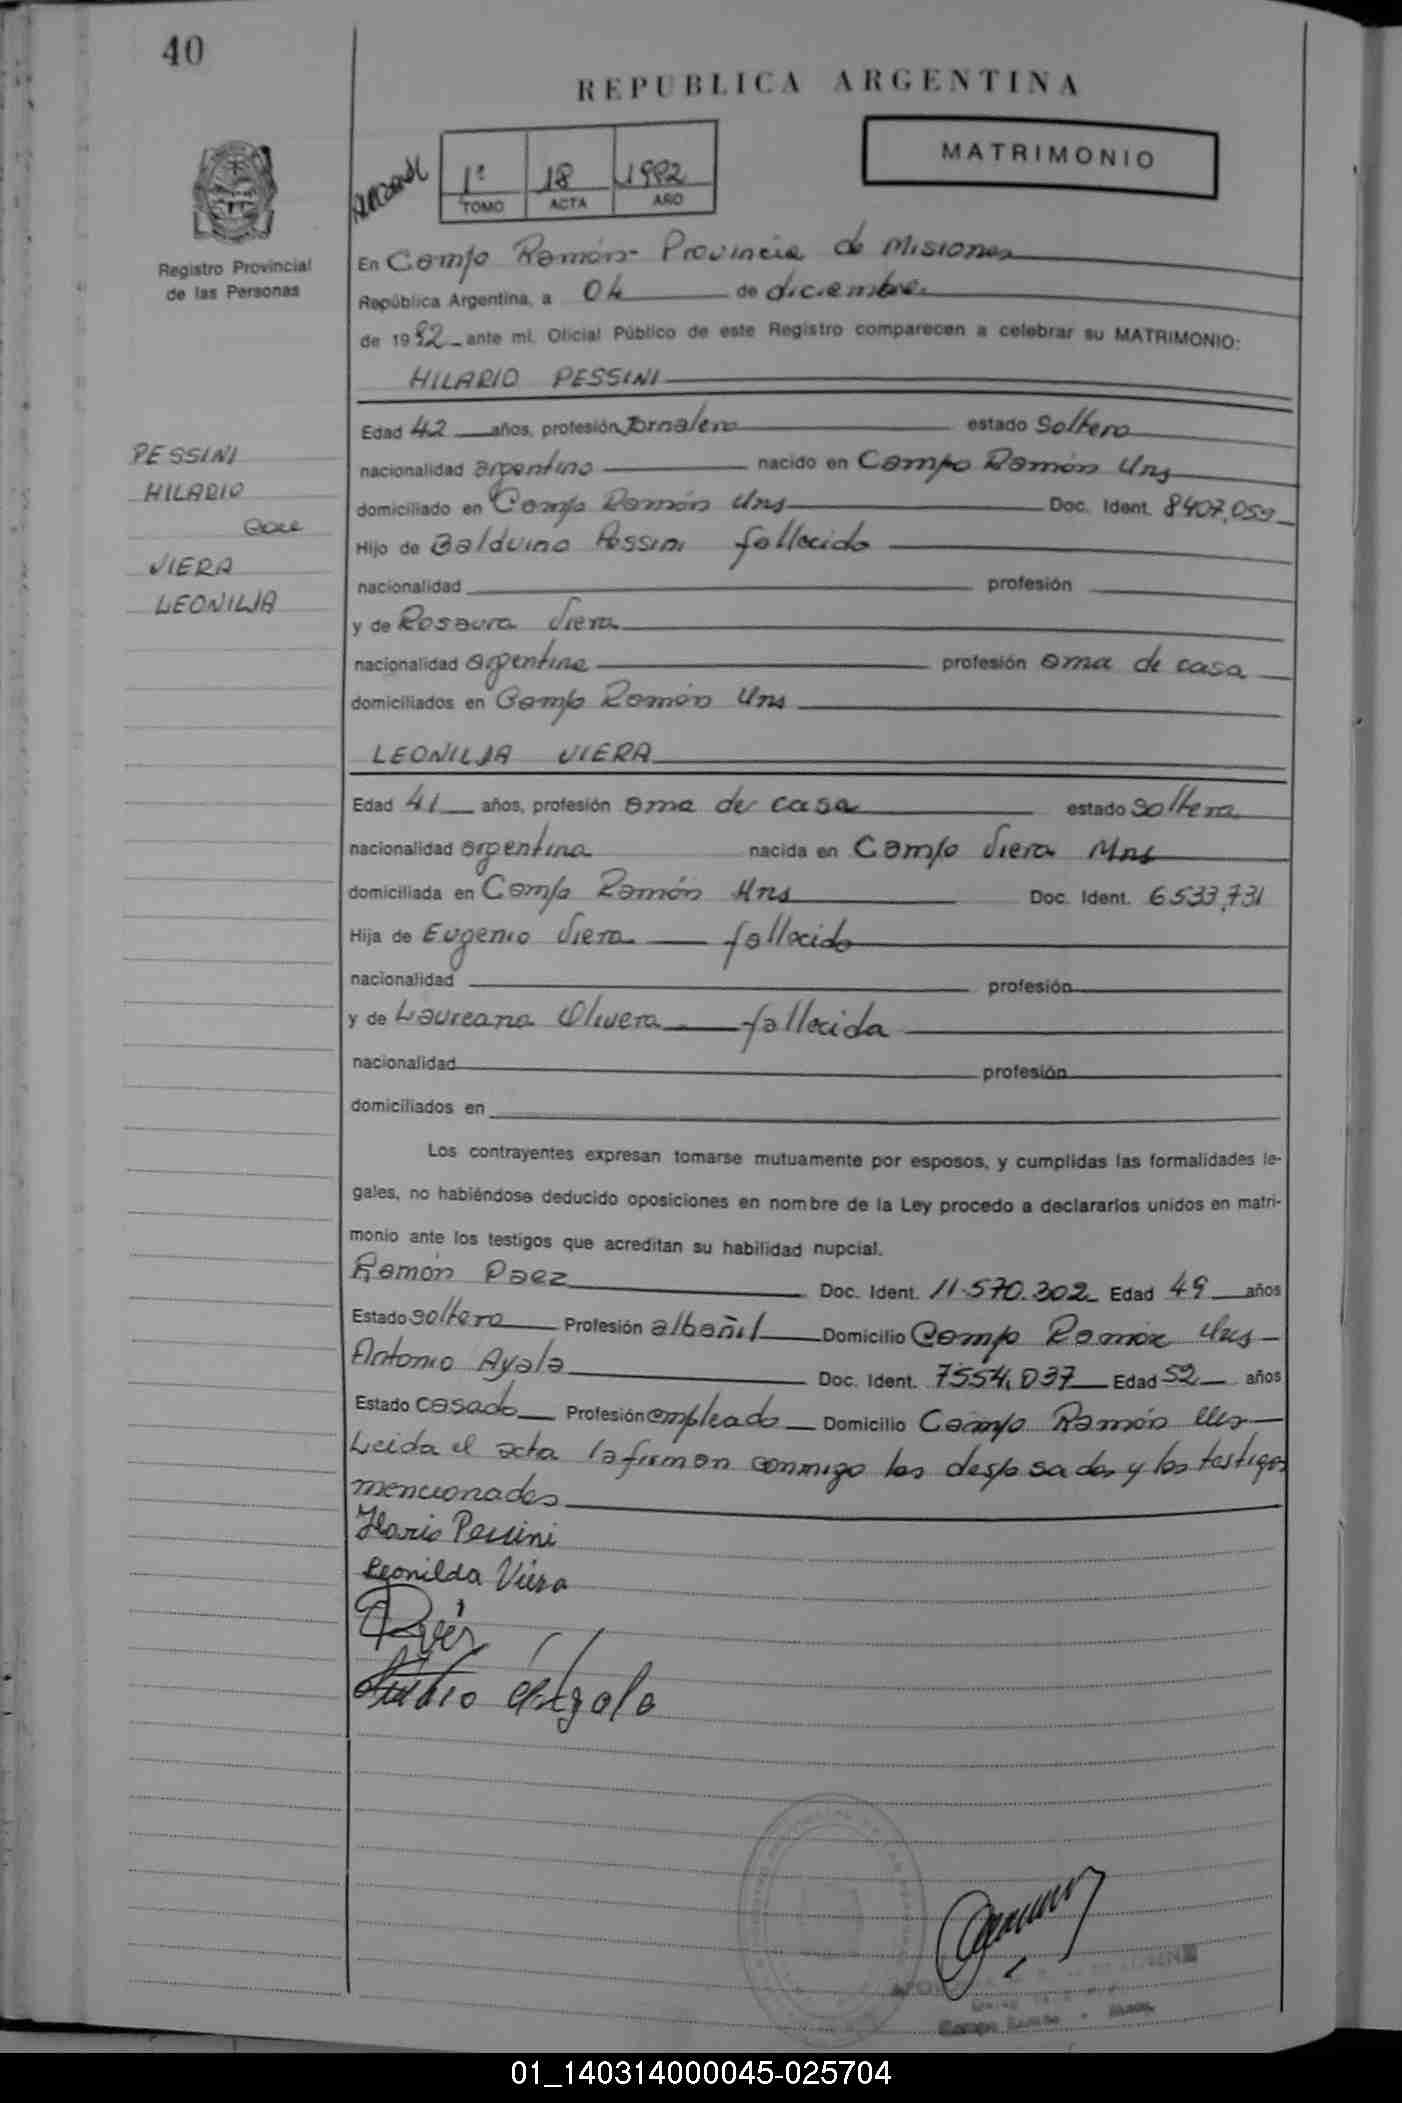 40
REPUBLICA ARGENTINA
MATRIMONIO
1º 18 1992
TOMO ACTA AÑO
Registro Provincial
de las Personas
En Campo Ramón - Provincia de Misiones
República Argentina, a 04 de diciembre
de 1992 ante mi, Oficial Público de este Registro comparecen a celebrar su MATRIMONIO:
HILARIO PESSINI
PESSINI
HILARIO
con
VIERA
LEONILDA
Edad 42 años, profesión Jornalero estado Soltero
nacionalidad argentino nacido en Campo Ramón Mns
domiciliado en Campo Ramón Mns Doc. Ident. 8407.059
Hijo de Balduino Pessini fallecido
nacionalidad profesión
y de Rosaura Viera
nacionalidad argentina profesión ama de casa
domiciliados en Campo Ramón Mns
LEONILDA VIERA
Edad 41 años, profesión ama de casa estado soltera
nacionalidad argentina nacida en Campo Viera Mns
domiciliada en Campo Ramón Mns Doc. Ident. 6533.731
Hija de Eugenio Viera fallecido
nacionalidad profesión
y de Laureana Olivera fallecida
nacionalidad profesión
domiciliados en
Los contrayentes expresan tomarse mutuamente por esposos, y cumplidas las formalidades le-
gales, no habiéndose deducido oposiciones en nombre de la Ley procedo a declararlos unidos en matri-
monio ante los testigos que acreditan su habilidad nupcial.
Ramón Paez Doc. Ident. 11.570.302 Edad 49 años
Estado soltero Profesión albañil Domicilio Campo Ramón Mns
Antonio Ayala Doc. Ident. 7554.037 Edad 52 años
Estado casado Profesión empleado Domicilio Campo Ramón Mns
Leida el acta la firman conmigo los desposados y los testigos
mencionados
Ilario Pessini
Leonilda Viera
Ayala
01_140314000045-025704